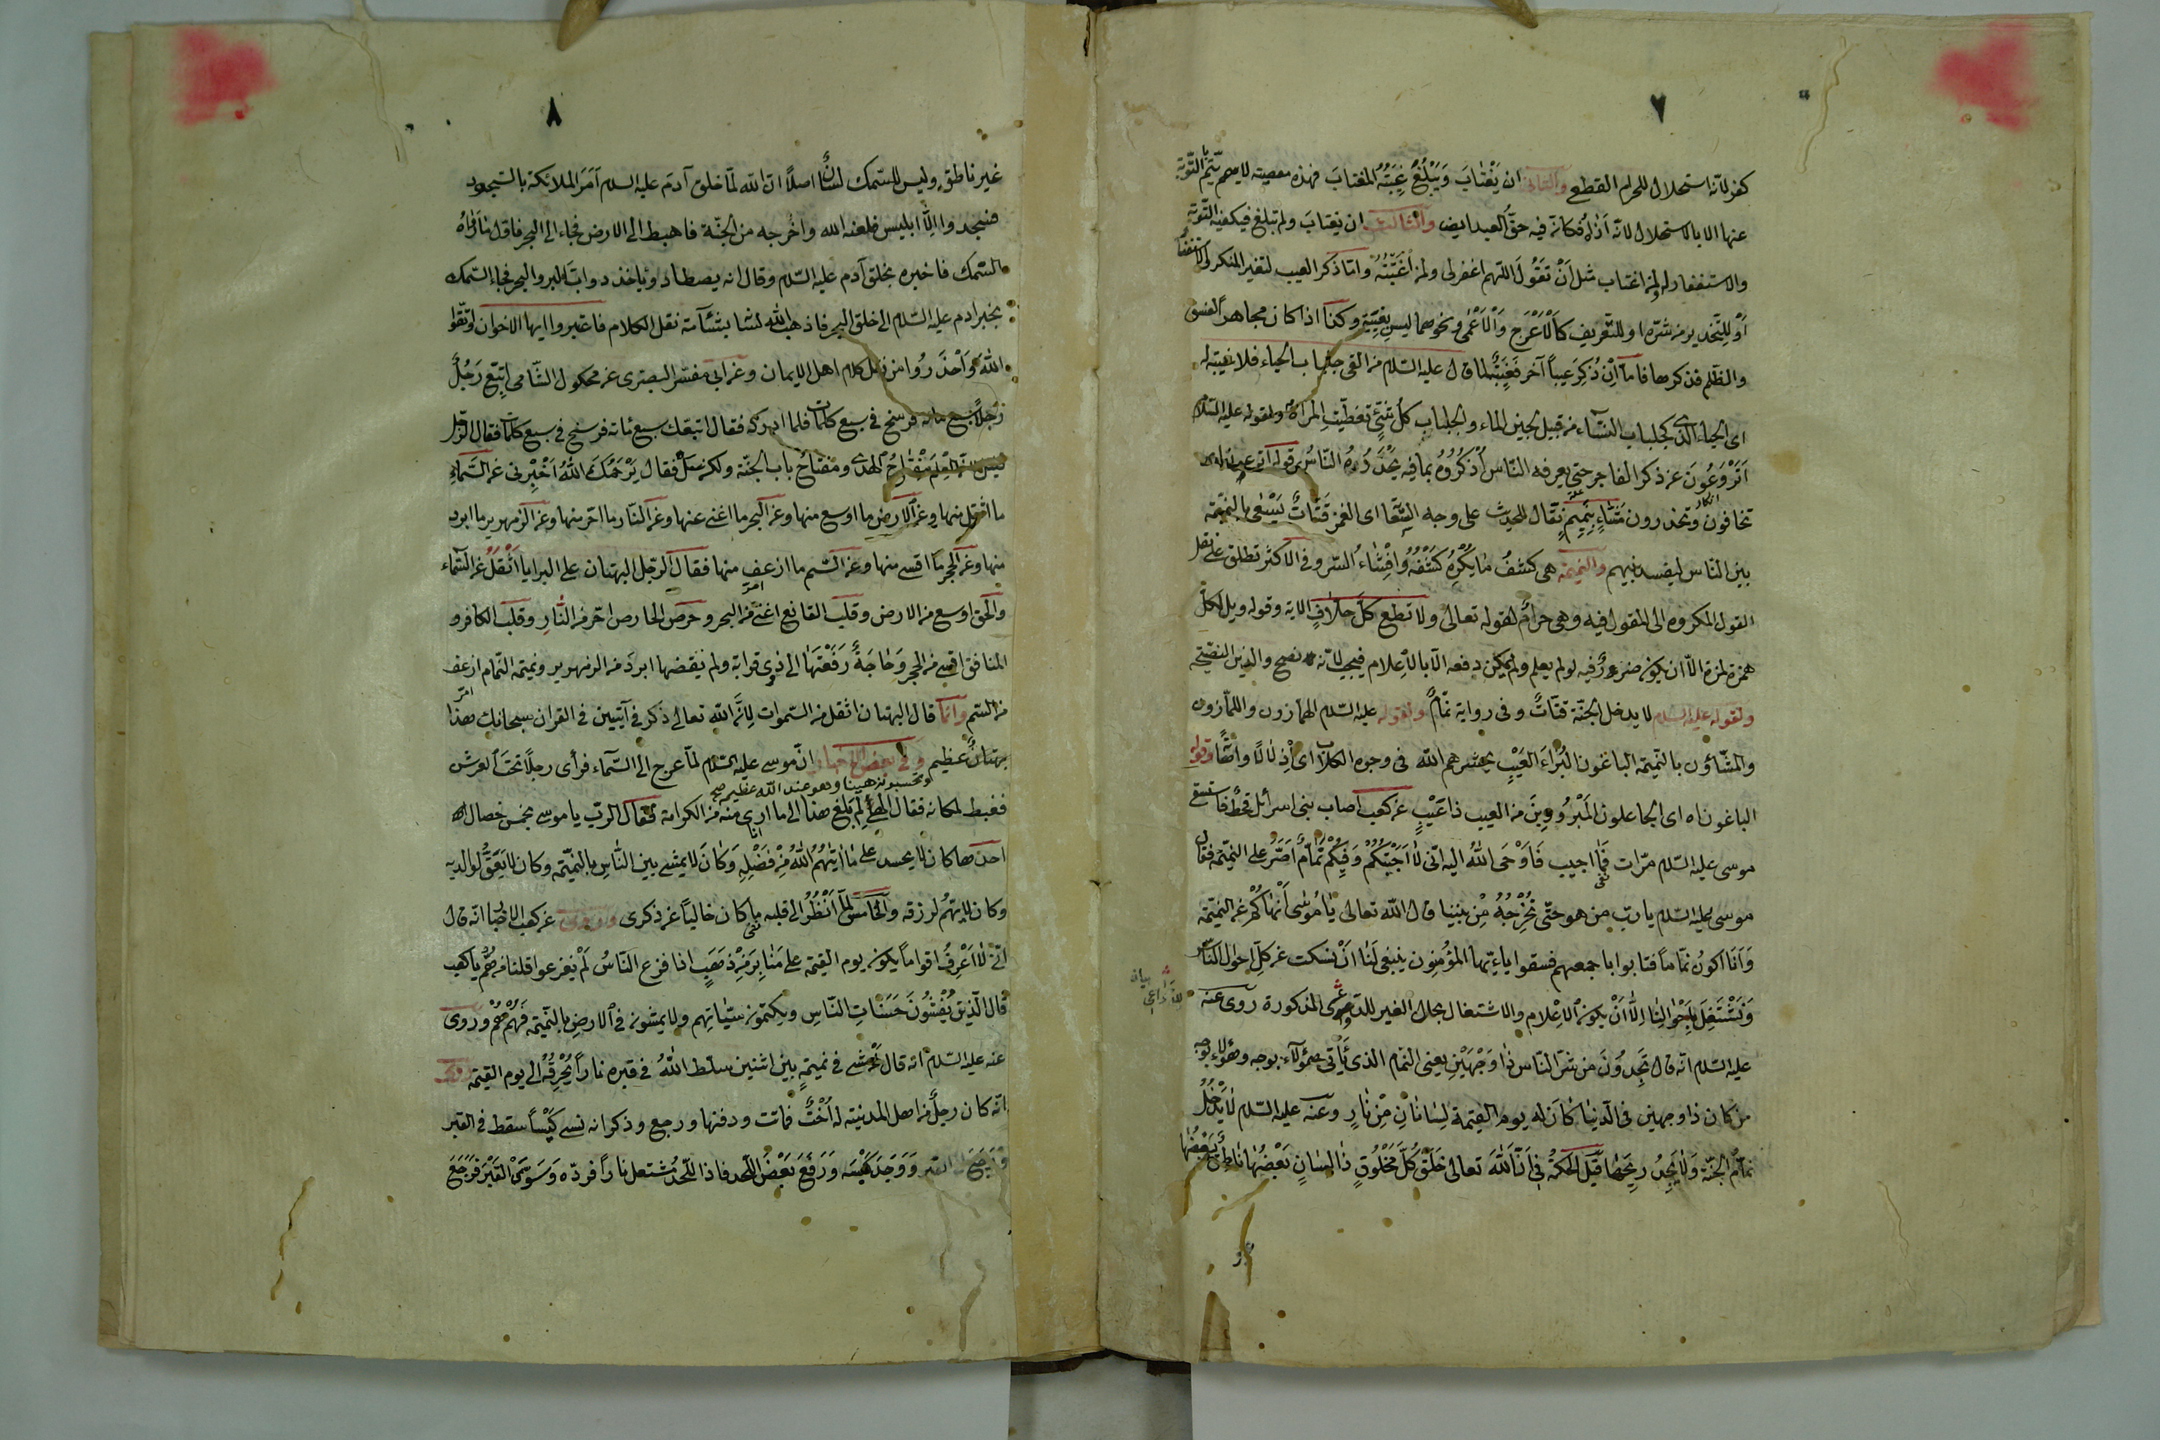 ٧
كفر لانّه استحلال للحرام القطعى والثانى ان يَغْتابَ وَيَبْلُغُ غِيبَتُهُ المغتابَ فهذه معصية لا يصحّ يتمّ التّوبة
عنها الا بالاستحلال لانّه اَذاهُ فكانه فيه حقّ العبد ايضا والثالث ان يغتابَ ولم تبلغ فيكفيه التّوبة
والاستغفار له ولمن اغتاب مثل اَنْ تَقُولَ اللّهم اغفرلى ولمن اغْتَبْتُهُ وامّا ذكر العيب لتغيير المنكر او الاستفتاء
اَوْ للتّحذير من شرّه او للتّعريف كاَلْاَعْرَجِ وَاَلْاَعْمٰى ونحوهما ليس بغيبة وكذا اذا كان مجاهر الفسق
والظّلم فذكرهما فامّا اِنْ ذُكِرَ عيباً آخر فَغيبَةٌ لما قال عليه السّلام من القى جلباب الحياء فلا غيبة له
اى الحياء الّذى كجلباب النسّاء من قبيل لجين الماء والجلباب كلّ شئ تغطّيت المراة ولقوله عليه السّلام
اَتَرْوعُونَ عن ذكر الفاجر حتى يعرفه النّاس اُذكُرُوهُ بما فيه يَحْذَرُهُ النّاسُ قوله
تخافون وتحذرون مَشّاءٍ بِنَميمٍ نقّال للحديث على وجه السّعا اى الغمز قَتّاتٌ يَسْعٰى بالنميمة
بين النّاس ليفسد بينهم والنميمة هى كشفُ مٰا يُكْرَهُ كَشْفُهُ وَاِفْشٰاءُ السّر وفى الاكثر تطلق على نقل
القول المكروه الى المقول فيه وهى حرامٌ لقوله تعالى ولا تطع كلّ حلاّفٍ الاية وقوله ويل لكلّ
همزة لمزة الاّ ان يكون ضررٌ فيه لو لم يعلم ولم يمكن دفعه الاّ بالاِعلام فيجب لانّه نصح والدين النصيحة
ولقوله عليه السّلام لا يدخل الجنّة قتّاتٌ وفى رواية نمّامٌ ولقوله عليه السّلام الهمازون واللمّازون
والمشّاؤن بالنّميمة الباغون البُرٰاءَ العَيْبِ يحشرهم اللّه فى وجوه الكلاب اى اِذْلٰالًا واثماً قوله
الباغون اه اى الجاعلون المَبْرُووِينَ من العيب ذا عَيْبٍ عن كعب اصاب بنى اسرائل قحطٌ فاستسقى
موسى عليه السّلام مرّات فما اجيب فَاَوْحَى اللّهُ اليه انّى لٰا اَجَبْتُكُمْ وَفِيكُمْ نَمّامٌ اَصَرَّ على النميمة فقال
موسى عليه السّلام يا ربّ من هو حتّى نُخْرِجُهُ مِنْ بيننا قال اللّه تعالى يا مُوسٰى اَنْهٰاكُمْ عن النميمة
وَاَنَا اكونُ نمّاماً فتابوا باجمعهم فسقوا يا ايّها المؤمنون ينبغى لَنٰا اَنْ نسكت عن كلّ احوال النّاس
وَنَشْتَغِلَ بِاَحْوٰالِنٰا اِلّٰا اَنْ يكون الاِعْلام والاشتغال بحال الغير للدّواعى المذكورة روى عنه
عليه السّلام انّه قال تَجِدُونَ من شرّ النّاس ذٰا وَجْهَيْنِ يعنى النمّام الذى يَأتى هؤلآء بوجه وهؤلاء بوجه
من كان ذا وجهين فى الدّنيا كٰانَ له يوم القيمة لِسٰانٰانِ مِنْ نٰارٍ وعنه عليه السّلام لٰا يَدْخُلُ
نمّامٌ الجنّة وَلا يَجِدُ رِيحَهٰا قيل الحكمةُ فى اَنّ اللّٰهَ تعالى خَلَقَ كُلَّ مَخْلُوقٍ ذٰا لِسٰانٍ بَعْضُهٰا نٰاطِقٌ بَعْضُهٰا
٨
غير ناطقٍ وليس للسّمك لسٰانٌ اصلاً انّ اللّه لمّا خلق آدم عليه السلام اَمَرَ الملائكة بالسّجود
فسجدوا اِلّا ابليس فلعنه اللّه واخْرجه من الجنّة فاهبط الى الارض فجاء الى البحر فاوّل مٰا رَاٰهُ
السّمك فاخبره بخلق آدم عليه السّلام وقال انه يصطاد وياخذ دوابّ البر والبحر فجاء السّمك
بخبر ادم عليه السّلام الى خلق البحر فاذهب اللّه لسٰانه بشٰآمة نقل الكلام فاعتبروا ايها الاخوان واتّقوا
اللّٰهَ وَاَحْذَرُوا من نقل كلام اهل الايمان وعن ابى مفسّر البصرى عن محكول الشّامى اِتبَعَ رَجُلٌ
رَجُلاً سبع مائة فرسخ فى سبع كلماتٍ فلما ادركه فقال اتبعتك سبع مائة فرسخ فى سبع كلمات فقال الرّجل
ليس العِلْمَ مفْتٰاحُ الهدى ومفتاحُ باب الجنّة ولكن سَلْ فقال يَرْحَمُكَ اللّٰهُ اَخْبِرْنى عن السَّماءِ
ما اثقل منها وعن الارض ما اوسع منها وعن البحر ما اغنى عنها وعن النّار ما احرّ منها وعن الزمهرير ما ابرد
منها وعن الحجر مٰا اقسى منها وعن السّم ما ازعف منها فقال الرّجل البهتان على البرايا اَثْقَلُ عن السّماء
والحقّ اوسع من الارض وقلب القانع اغنى من البحر وحرص الحارص احرّ من النّارِ وقلب الكافر و
المنافق اقسى من الحجر وَحٰاجَةٌ رَفَعْتَهٰا الى ذوى قرابةٍ ولم يقضها ابردُ من الزمهرير ونميمة النّمام ازعف
من السّم وانّما قال البهتان اثقل من السّموات لِاَنَّ اللّه تعالى ذكر فى آيتيين فى القران سبحانك هذا
بهتانٌ عظيم وتحسبونه هيّنا وهو عند اللّه عظيم صح وفى بعض الاخبار انّ موسى عليه السّلام لمّا عرج الى السّماء فرأى رجلاً تحت العرش
فغبط لمكانه فقال الهى لِمَ بَلَغَ هذا الى ما ارى منه من الكرامة فقال الربّ يا موسى بخمس خصال
احدها كان لا يحسد على مٰا اٰتٰيهُمُ اللّٰهُ مِنْ فضْلِهِ وَكٰانَ لا يمشى بين النّاسِ بالنميمة وكان لا يَعُقُّ لوالديه
وكان لا يتهم لرزقه والخامس لَمْ اَنْظُر الى قلبه مٰا كان خالياً عن ذكرى وروى عن كعب الاحبار انه قال
انّى لٰا اَعْرِفُ اقواماً يكون يوم القيمة على مَنٰابِرَ مِنْ ذهَبٍ اذا فزع النّاسُ لَمْ يفزعوا قلنا مَنْ هُمْ يا كعب
قال الّذين يُفْشُونَ حَسَنٰاتِ النّاسِ ويكتمون سيّئاتِهِم ولا يمشون فى الارضِ بالنّميمة فَهُمْ هُمْ وروى
عنه عليه السّلام انه قال مَنْ مشى فى نميمةٍ بين اثنين سلّط اللّٰهُ فى قبره ناراً تُحْرِقُهُ الى يوم القيمة روى
انّه كان رجلٌ من اهل المدينة له اُخْتٌ فماتت ودفنها ورجع وذكر انه نسى كَيْساً سقط فى القبر
فَرَجَعَ القبر وَوَجَدَ كَيْسَه وَرَفَعَ بَعْضَ اللّحد فاذا اللّحد مُشتعل ناراً فردّه وَسَوّى القَبْرَ فرَجَعَ